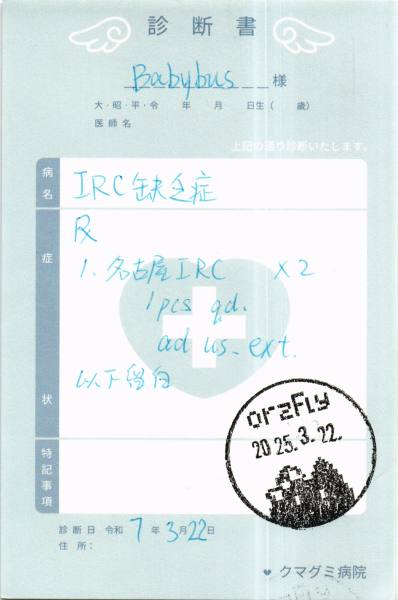 診断書
Babybus 様
大・昭・平・令　年　月　日生（　歳）
医師名
上記の通り診断いたします。
病名
IRC缺乏症
症状
℞
1. 名古屋IRC ×2
1pcs qd.
ad us. ext.
以下留白
orzFly
2025.3.22.
特記事項
診断日 令和 7 年 3月22日
住所：
クマグミ病院